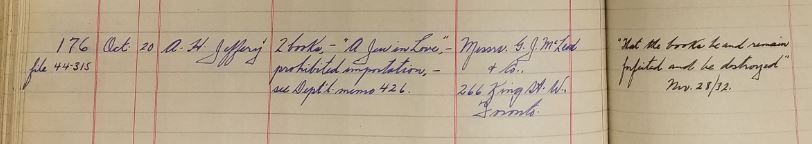 176 Oct. 20 A. H. Jeffery 2 books, - "A Jew in Love", - Messrs. G. J. McLeod "that the books be and remain
file 44-315 prohibited importation, - & Co., forfeited and be destroyed"
see Dep't'l memo 426. 266 King St. W. Nov. 28/32.
Toronto.